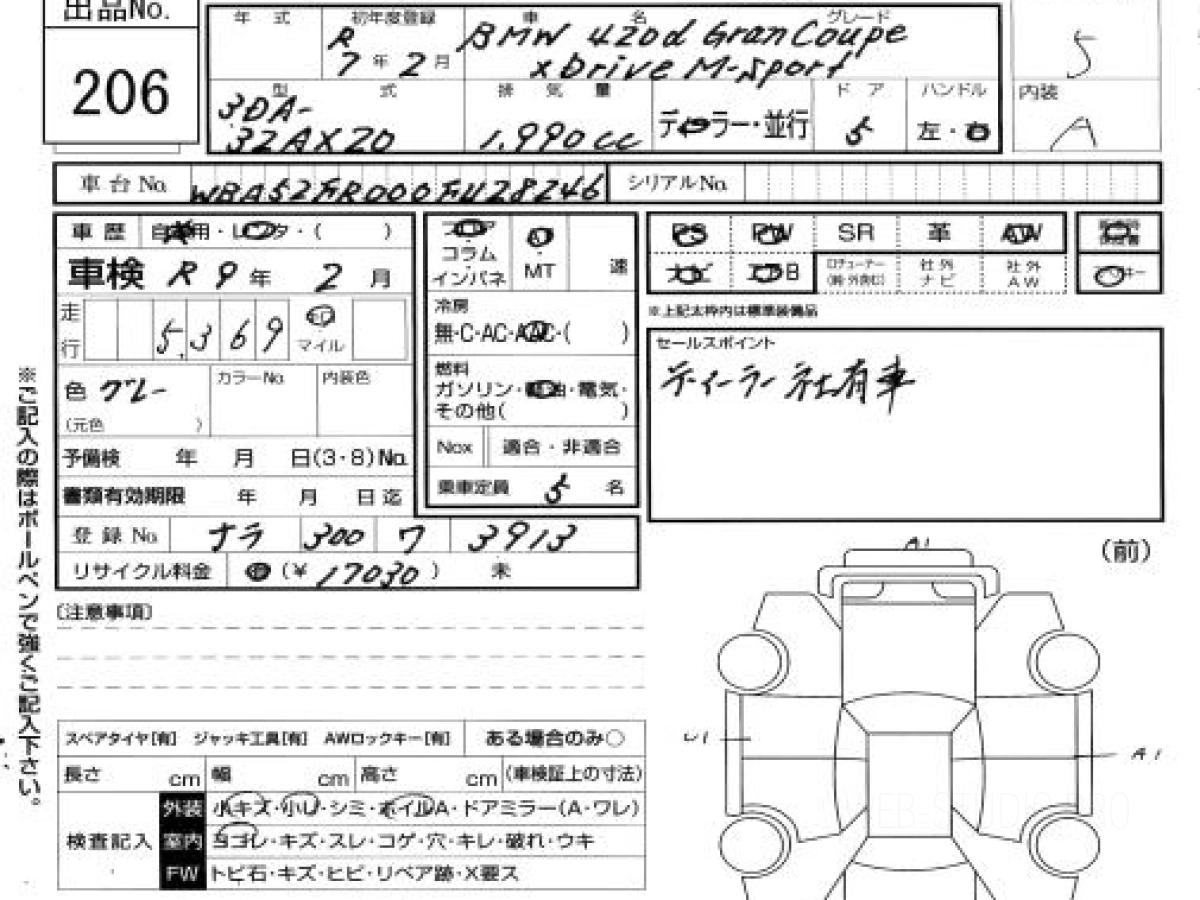 出品No.
206
年 式
初年度登録
車 名
グレード
R
7 年 2 月
BMW 420d GranCoupe
xDrive M-sport
5
型 式
排 気 量
ド ア
ハンドル
内装
3DA-
32AX20
1.990cc
ディーラー・並行
5
左・右
A
車台No.
WBA52FR000FU28246
シリアルNo.
車 歴
自家用・レンタ・( )
車検 R 9 年 2 月
走行
5.369
マイル
色 グレー
(元色 )
カラーNo.
内装色
予備検 年 月 日(3・8)No.
書類有効期限 年 月 日迄
登録No. ナラ 300 ワ 3913
リサイクル料金 (¥ 17030 ) 未
フロア
コラム
インパネ
AT
MT
速
冷房
無・C・AC・AAC・( )
燃料
ガソリン・軽油・電気・
その他( )
Nox 適合・非適合
乗車定員 5 名
PS PW SR 革 AW
ナビ エアB
社外
ナビ
社外
AW
※上記太枠内は標準装備品
セールスポイント
ディーラー社有車
※ご記入の際はボールペンで強くご記入下さい。
(注意事項)
(前)
A1
U1
A1
スペアタイヤ[有] ジャッキ工具[有] AWロックキー[有] ある場合のみ○
長さ cm 幅 cm 高さ cm (車検証上の寸法)
検査記入
外装 小キズ・小U・シミ・ホイルA・ドアミラー(A・ワレ)
室内 ヨゴレ・キズ・スレ・コゲ・穴・キレ・破れ・ウキ
FW トビ石・キズ・ヒビ・リペア跡・X要ス